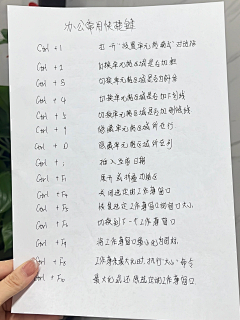 办公常用快捷键
Ctrl + 1 打开"设置单元格格式"对话框
Ctrl + 2 切换单元格区域是否加粗
Ctrl + 3 切换单元格区域是否倾斜
Ctrl + 4 切换单元格区域是否加下划线
Ctrl + 5 切换单元格区域是否加删除线
Ctrl + 9 隐藏单元格区域所在行
Ctrl + 0 隐藏单元格区域所在列
Ctrl + ; 插入当前日期
Ctrl + F1 展开或折叠功能区
Ctrl + F4 关闭选定的工作簿窗口
Ctrl + F5 恢复选定工作簿窗口的窗口大小
Ctrl + F6 切换到下一个工作簿窗口
Ctrl + F9 将工作簿窗口最小化为图标
Ctrl + F8 工作簿未最大化时,执行"大小"命令
Ctrl + F10 最大化或还原选定的工作簿窗口